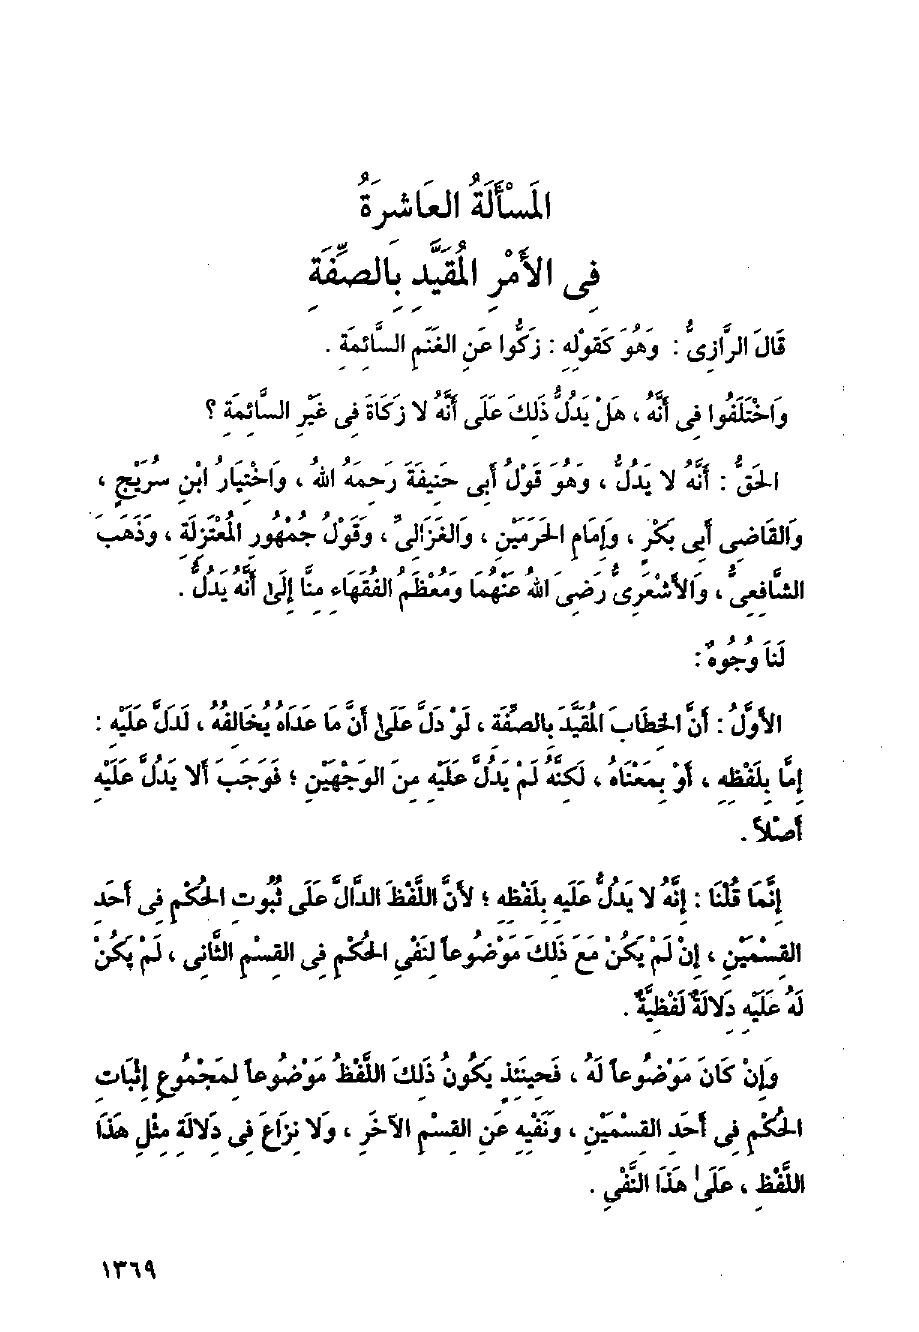 المَسْأَلَةُ العَاشِرَةُ
فِى الأَمْرِ المُقَيَّدِ بِالصِّفَةِ
قَالَ الرَّازِىُّ : وَهُوَ كَقَوْلِهِ : زَكُّوا عَنِ الغَنَمِ السَّائِمَةِ .
وَاخْتَلَفُوا فِى أَنَّهُ ، هَلْ يَدُلُّ ذَلِكَ عَلَى أَنَّهُ لا زَكَاةَ فِى غَيْرِ السَّائِمَةِ ؟
الحَقُّ : أَنَّهُ لا يَدُلُّ ، وَهُوَ قَوْلُ أَبِى حَنِيفَةَ رَحِمَهُ اللهُ ، وَاخْتِيَارُ ابْنِ سُرَيْجٍ ،
وَالقَاضِى أَبِى بَكْرٍ ، وَإِمَامِ الحَرَمَيْنِ ، وَالغَزَالِىِّ ، وَقَوْلُ جُمْهُورِ المُعْتَزِلَةِ ، وَذَهَبَ
الشَّافِعِىُّ ، وَالأَشْعَرِىُّ رَضِىَ اللهُ عَنْهُمَا وَمُعْظَمُ الفُقَهَاءِ مِنَّا إِلَىٰ أَنَّهُ يَدُلُّ .
لَنَا وُجُوهٌ :
الأَوَّلُ : أَنَّ الخِطَابَ المُقَيَّدَ بِالصِّفَةِ ، لَوْ دَلَّ عَلَىٰ أَنَّ مَا عَدَاهُ يُخَالِفُهُ ، لَدَلَّ عَلَيْهِ :
إِمَّا بِلَفْظِهِ ، أَوْ بِمَعْنَاهُ ، لَكِنَّهُ لَمْ يَدُلَّ عَلَيْهِ مِنَ الوَجْهَيْنِ ؛ فَوَجَبَ أَلا يَدُلَّ عَلَيْهِ
أَصْلاً .
إِنَّمَا قُلْنَا : إِنَّهُ لا يَدُلُّ عَلَيْهِ بِلَفْظِهِ ؛ لأَنَّ اللَّفْظَ الدَّالَّ عَلَى ثُبُوتِ الحُكْمِ فِى أَحَدِ
القِسْمَيْنِ ، إِنْ لَمْ يَكُنْ مَعَ ذَلِكَ مَوْضُوعاً لِنَفْىِ الحُكْمِ فِى القِسْمِ الثَّانِى ، لَمْ يَكُنْ
لَهُ عَلَيْهِ دِلالَةٌ لَفْظِيَّةٌ .
وَإِنْ كَانَ مَوْضُوعاً لَهُ ، فَحِينَئِذٍ يَكُونُ ذَلِكَ اللَّفْظُ مَوْضُوعاً لِمَجْمُوعِ إِثْبَاتِ
الحُكْمِ فِى أَحَدِ القِسْمَيْنِ ، وَنَفْيِهِ عَنِ القِسْمِ الآخَرِ ، وَلا نِزَاعَ فِى دِلالَةِ مِثْلِ هَذَا
اللَّفْظِ ، عَلَىٰ هَذَا النَّفْىِ .
١٣٦٩